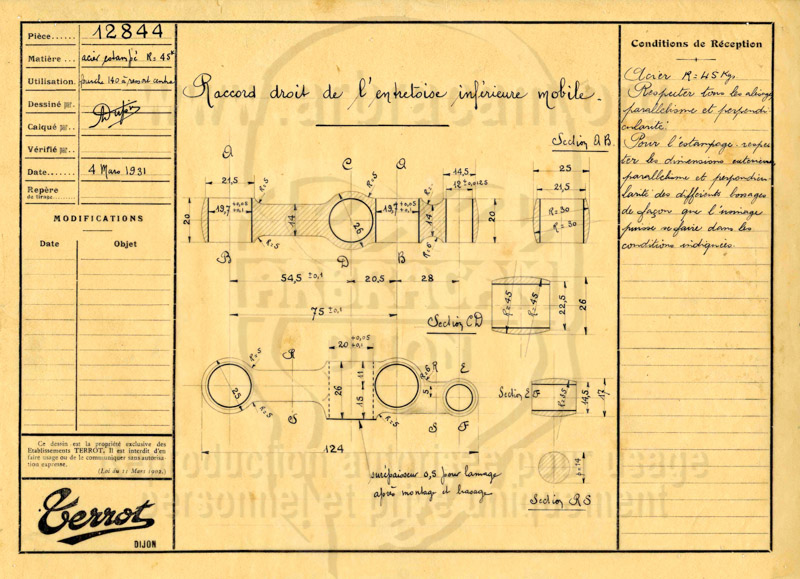 Pièce...... 12844
Matière ... acier estampé R = 45ᴷ
Utilisation. fourche 140 à ressort central
Dessiné par.
Calqué par..
Vérifié par..
Date....... 4 Mars 1931
Repère
de tirage
MODIFICATIONS
Date Objet
Ce dessin est la propriété exclusive des
Etablissements TERROT, Il est interdit d'en
faire usage ou de le communiquer sans autorisa-
tion expresse.
(Loi du 11 Mars 1902.)
Terrot
DIJON
Raccord droit de l'entretoise inférieure mobile.
Section A B.
A C A
21,5 R=5 R=5 14,5 25
12 ±0,125 21,5
20 19,7 +0,05 +0,1 14 25 19,7 +0,05 +0,1 14 20 R=30
R=30
R=5 R=5 R=6
B D B
54,5 ±0,1 20,5 28
75 ±0,1
R=45 R=45 22,5 26
Section CD
20 +0,05 +0,1
R=5 R R=6 R E
25 26 11 15 5 Section E F R=35 14,5 17
R=5 S R=5 S F
124
surépaisseur 0,5 pour lamage
après montage et brasage
ϕ=14
Section R S
Conditions de Réception
Acier R = 45 Kgs.
Respecter tous les alésages
parallélisme et perpendi
cularité.
Pour l'estampage respec
ter les dimensions extérieures
parallélisme et perpendicu
larité des différents bossages
de façon que l'usinage
puisse se faire dans les
conditions indiquées.